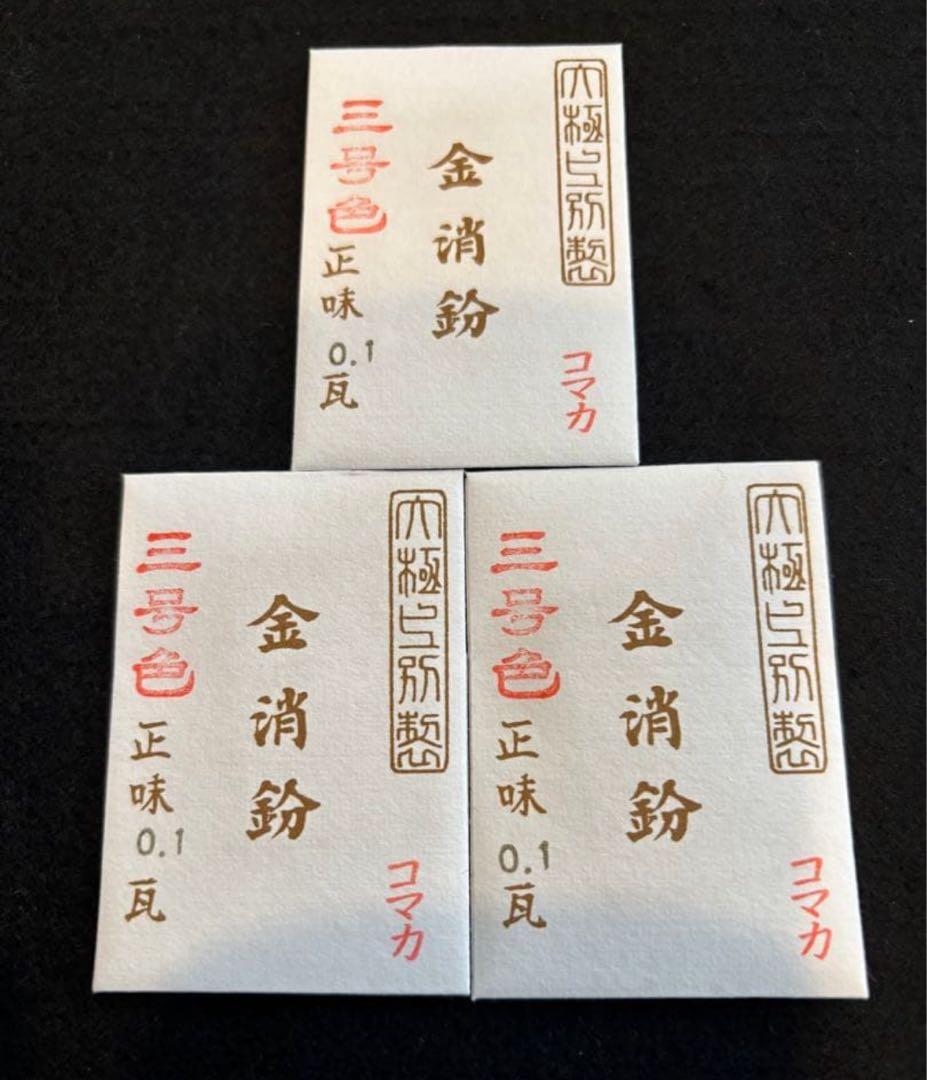 大極上別製
コマカ
金消鈖
三号色
正味0.1瓦
大極上別製
コマカ
金消鈖
三号色
正味0.1瓦
大極上別製
コマカ
金消鈖
三号色
正味0.1瓦